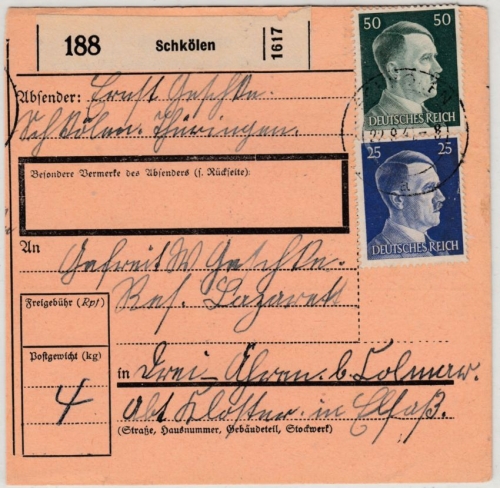 188 Schkölen 1617
50 50
DEUTSCHES REICH
25 25
DEUTSCHES REICH
a
Absender: Ernst Geschke.
Schkölen. Thüringen.
Besondere Vermerke des Absenders (s. Rückseite):
An Gefreit W Geschke.
Res. Lazarett
Freigebühr (Rpf)
Postgewicht (kg)
4
in Drei-Ähren. b. Colmar.
Abt Kloster. in Elsaß.
(Straße, Hausnummer, Gebäudeteil, Stockwerk)